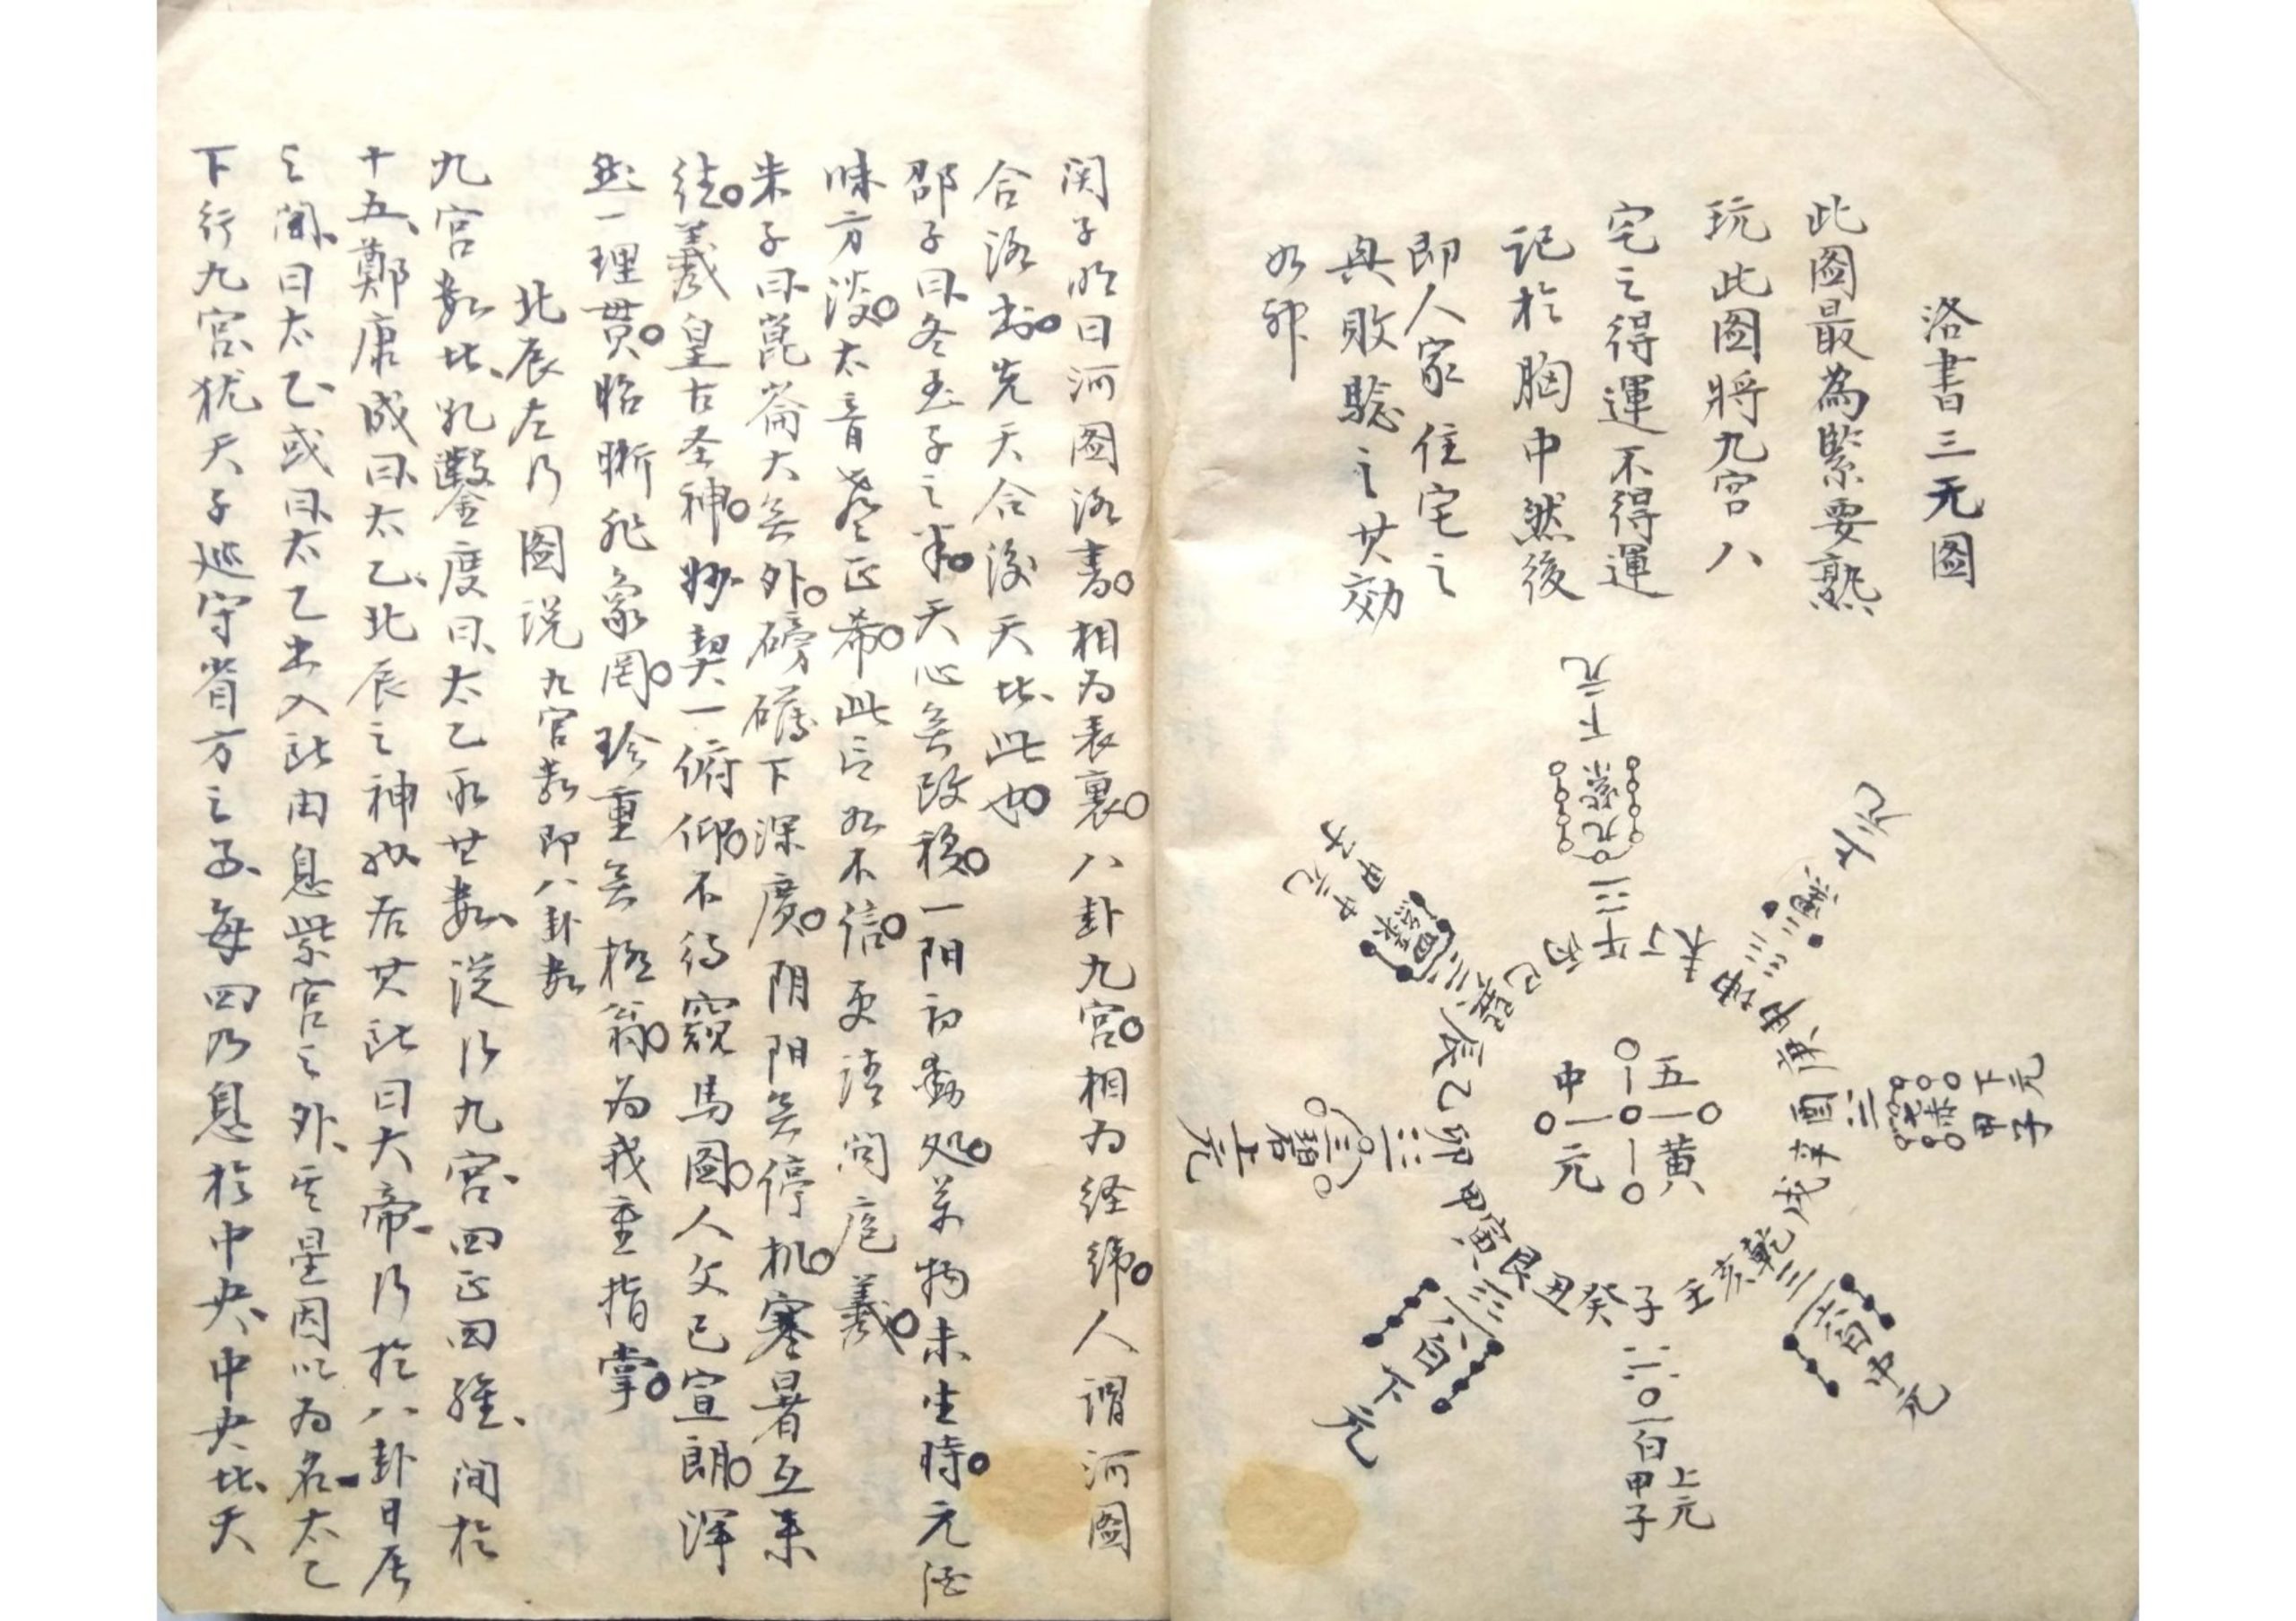 洛書三元图
此图最為緊要熟
玩此图將九宮八
宅之得運不得運
記於胸中然後
即人家住宅之
興敗騐之其効
如神
下元
九紫
上元
二黑
中元
甲子
四綠
巽巳丙午丁未坤申庚酉辛戌乾亥壬子癸丑艮寅甲卯乙辰
五黃
中元
下元
甲子
七赤
三碧
上元
六白中元
八白
下元
一白
上元
甲子
関子明曰河图洛書相为表裏八卦九宮相为経緯人謂河图
合洛书先天合後天北此也
邵子曰冬至子之半天心无改移一阳初動処万物未生時元酒
味方淡太音声正希此言如不信更請问庖羲
朱子曰崑崙大无外磅礴下深廣阴阳无停机寒暑互来
往羲皇古圣神妙契一俯仰不待窺馬图人文已宣朗渾
然一理贯昭晰非象罔珍重无極翁为我重指掌
北辰左乃图说 九宮数即八卦数
九宮数北乾鑿度曰太乙取其数以行九宮四正四維间於
十五鄭康成曰太乙北辰之神也居其所曰大帝行於八卦日辰
之间曰太乙或曰太乙出入所由息紫宮之外其星因以为名太乙
下行九宮犹天子巡守省方之每四乃息於中央中央北天